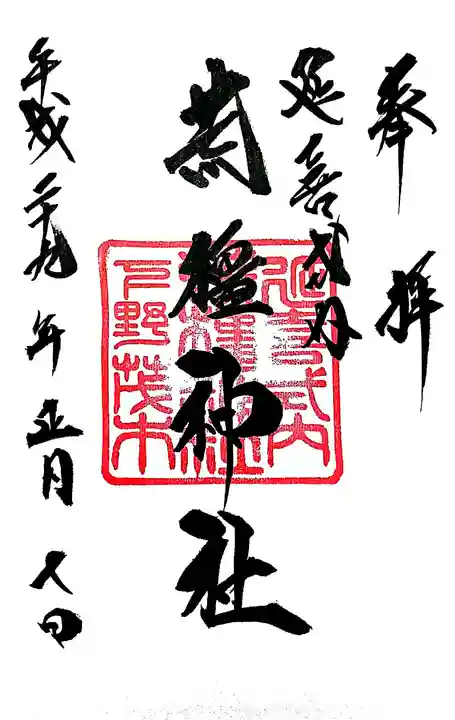 奉拝
延喜式内
荒橿神社
平成二十九年正月八日
延喜式内
荒橿神社
下野茂木